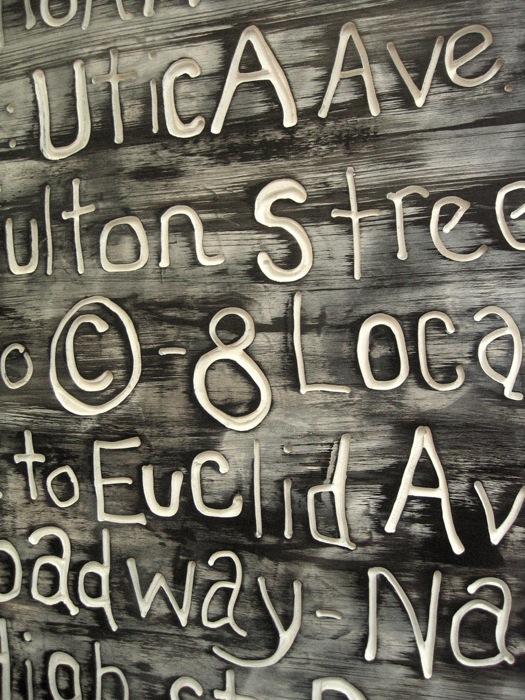 UticA Ave
ulton Stree
o ©-8 Loca
to Euclid Av
oadway-Na
High St